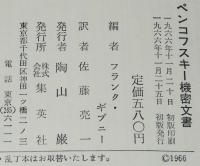 ペンコフスキー機密文書
一九六六年十一月二十日 初版印刷
一九六六年十一月二十五日 初版発行
定価五八〇円
編者 フランク・ギブニー
訳者 佐藤亮一
発行者 陶山巌
発行所 株式会社 集英社
東京都千代田区神田一ツ橋二ノ三
電話 東京(265)六一一一
乱丁本はお取替いたします。
©1966